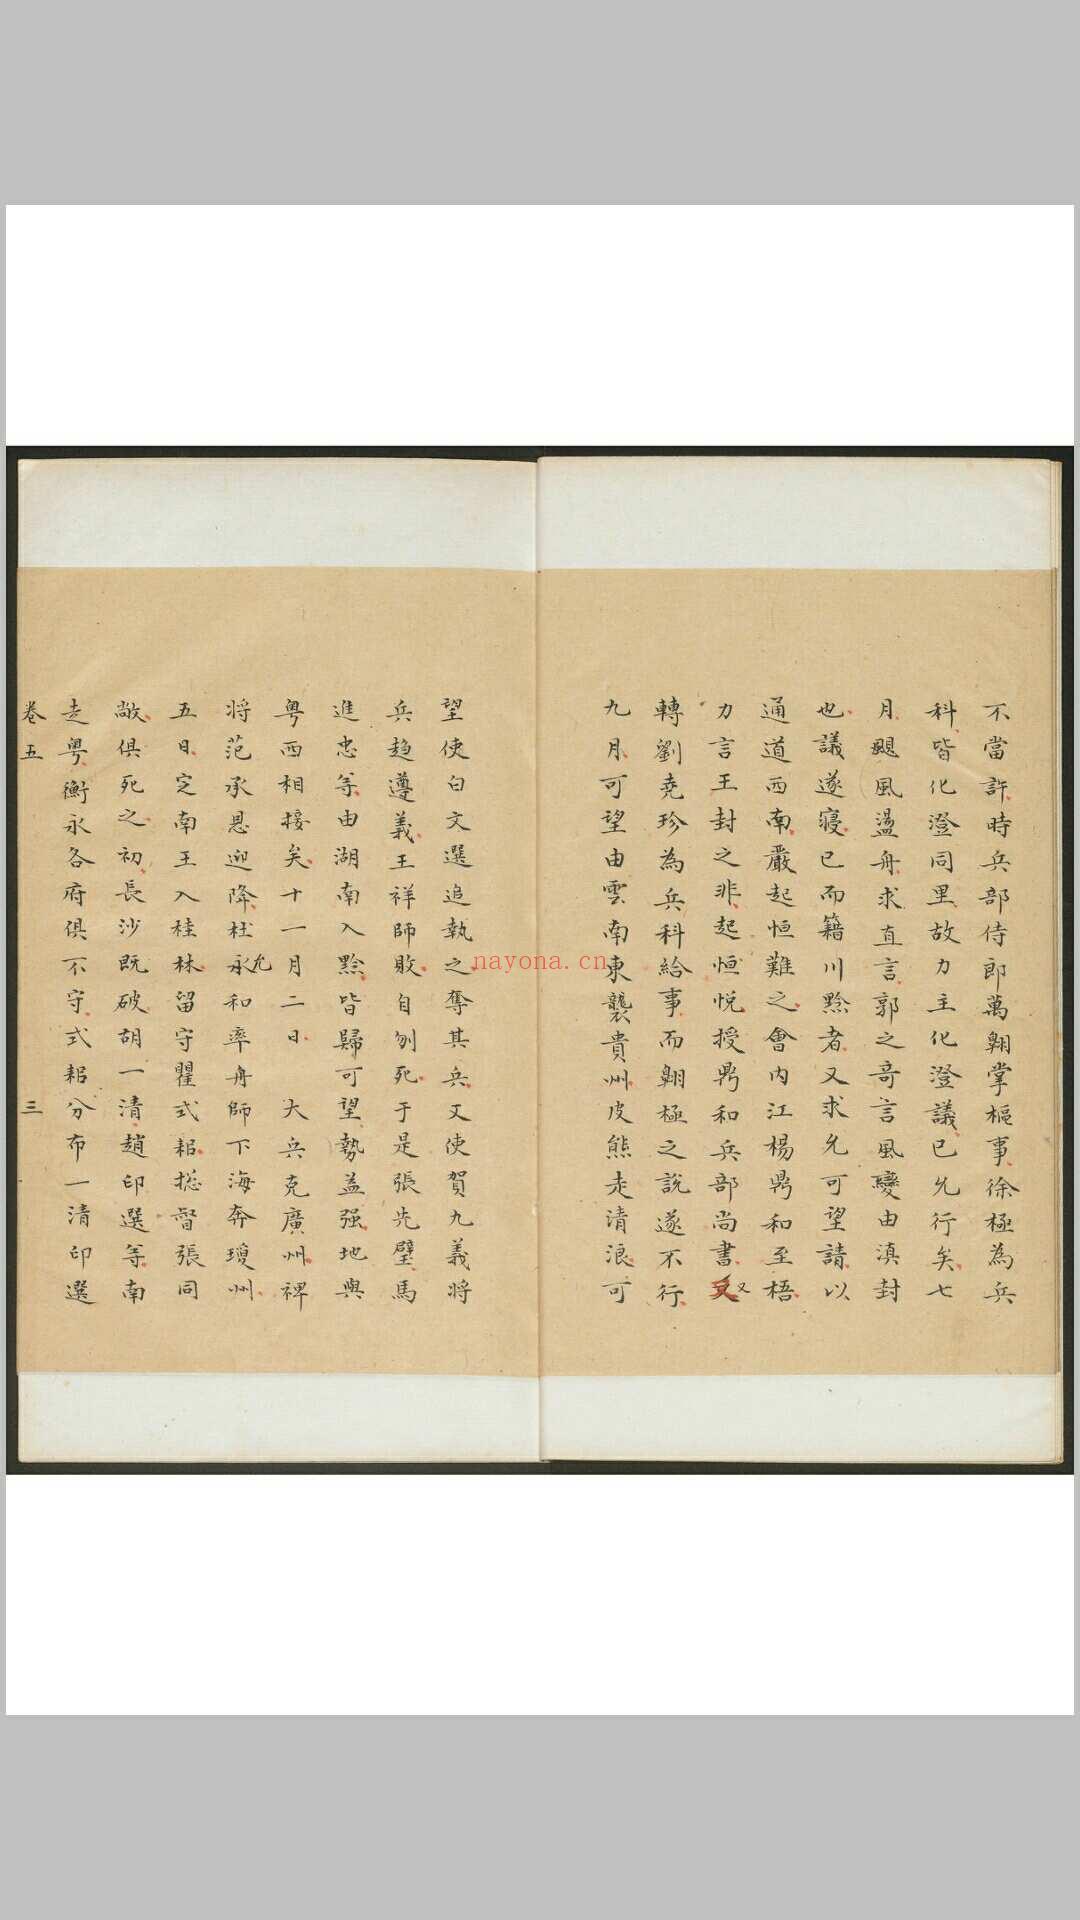 不當許時兵部侍郎萬翱掌樞事徐極為兵
科皆化澄同里故力主化澄議已允行矣七
月颶風盪舟求直言郭之奇言風變由滇封
也議遂寢已而籍川黔者又求允可望請以
通道西南嚴起恒難之會內江楊鼎和至梧
力言王封之非起恒悅授鼎和兵部尚書又
轉劉堯珍為兵科給事而翱極之說遂不行
九月可望由雲南東襲貴州皮熊走清浪可
望使白文選追執之奪其兵又使賀九義將
兵趋遵義王祥師敗自刎死于是張先璧馬
進忠等由湖南入黔皆歸可望勢益强地與
粤西相接矣十一月二日大兵克廣州裨
将范承恩迎降杜永和率舟師下海奔瓊州
允
五日定南王入桂林留守瞿式耜捴督張同
敞俱死之初長沙既破胡一清趙印選等南
走粤衡永各府俱不守式耜分布一清印選
卷五 三
nayona.cn